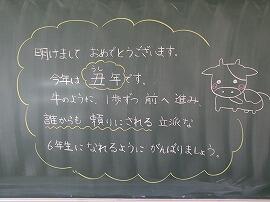 明けまして おめでとうございます。
うし
今年は 丑 年です。
牛のように、1歩ずつ 前へ 進み、
誰からも 頼りにされる 立派な
6年生に なれるように がんばりましょう。